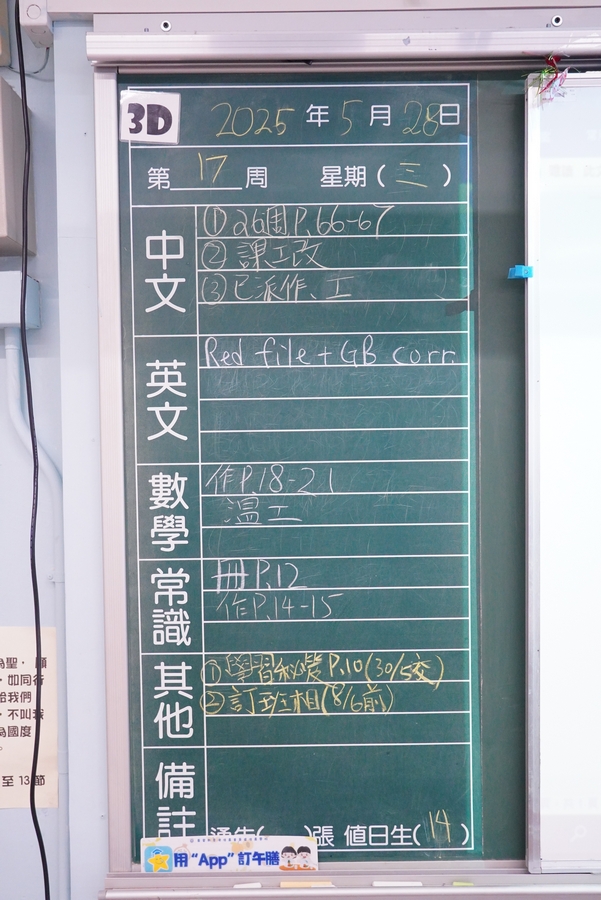 3D
2025年5月28日
第17周 星期(三)
中文
①26週P.66-67
②課工改
③已派作、工
英文
Red file + GB corr.
數學
作P.18-21
溫工
常識
冊P.12
作P.14-15
其他
①學習秘笈P.10(30/5交)
②訂班相(8/6前)
備註
通告( )張 值日生(14)
用“App”訂午膳
為聖，願
，如同
給我們
，不叫我
為國度
。
至 13 節